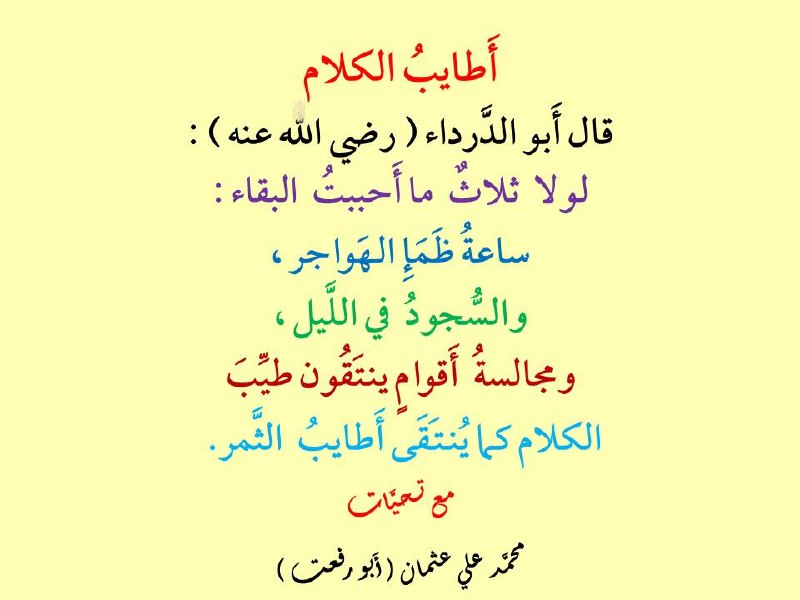 أَطايبُ الكلام
قال أَبو الدَّرداء ( رضي الله عنه ) :
لولا ثلاثٌ ما أَحببتُ البقاء :
ساعةُ ظَمَإِ الهَواجر ،
والسُّجودُ في اللَّيل ،
ومجالسةُ أَقوامٍ ينتَقُون طيِّبَ
الكلام كما يُنتَقَى أَطايبُ الثَّمر .
مع تحيَّات
محمَّد علي عثمان ( أَبو رفعت )